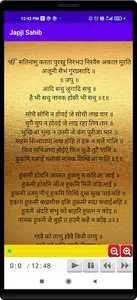 12:42 PM
Japji Sahib
सतिनामु करता पुरखु निरभउ निरवैरु अकाल मूरति
अजूनी सैभं गुरप्रसादि ॥
॥ जपु ॥
आदि सचु जुगादि सचु ॥
है भी सचु नानक होसी भी सचु ॥१॥
सोचै सोचि न होवई जे सोची लख वार ॥
चुपै चुप न होवई जे लाइ रहा लिव तार ॥
भुखिआ भुख न उतरी जे बंना पुरीआ भार ॥
सहस सिआणपा लख होहि त इक न चलै नालि ॥
किव सचिआरा होईऐ किव कूड़ै तुटै पालि ॥
हुकमि रजाई चलणा नानक लिखिआ नालि ॥१॥
हुकमी होवनि आकार हुकमु न कहिआ जाई ॥
हुकमी होवनि जीअ हुकमि मिलै वडिआई ॥
हुकमी उतमु नीचु हुकमि लिखि दुख सुख पाईअहि ॥
इकना हुकमी बखसीस इकि हुकमी सदा भवाईअहि ॥
हुकमै अंदरि सभु को बाहरि हुकम न कोइ ॥
नानक हुकमै जे बुझै त हउमै कहै न कोइ ॥२॥
गावै को ताणु होवै किसै ताणु ॥
0:0 / 12:48